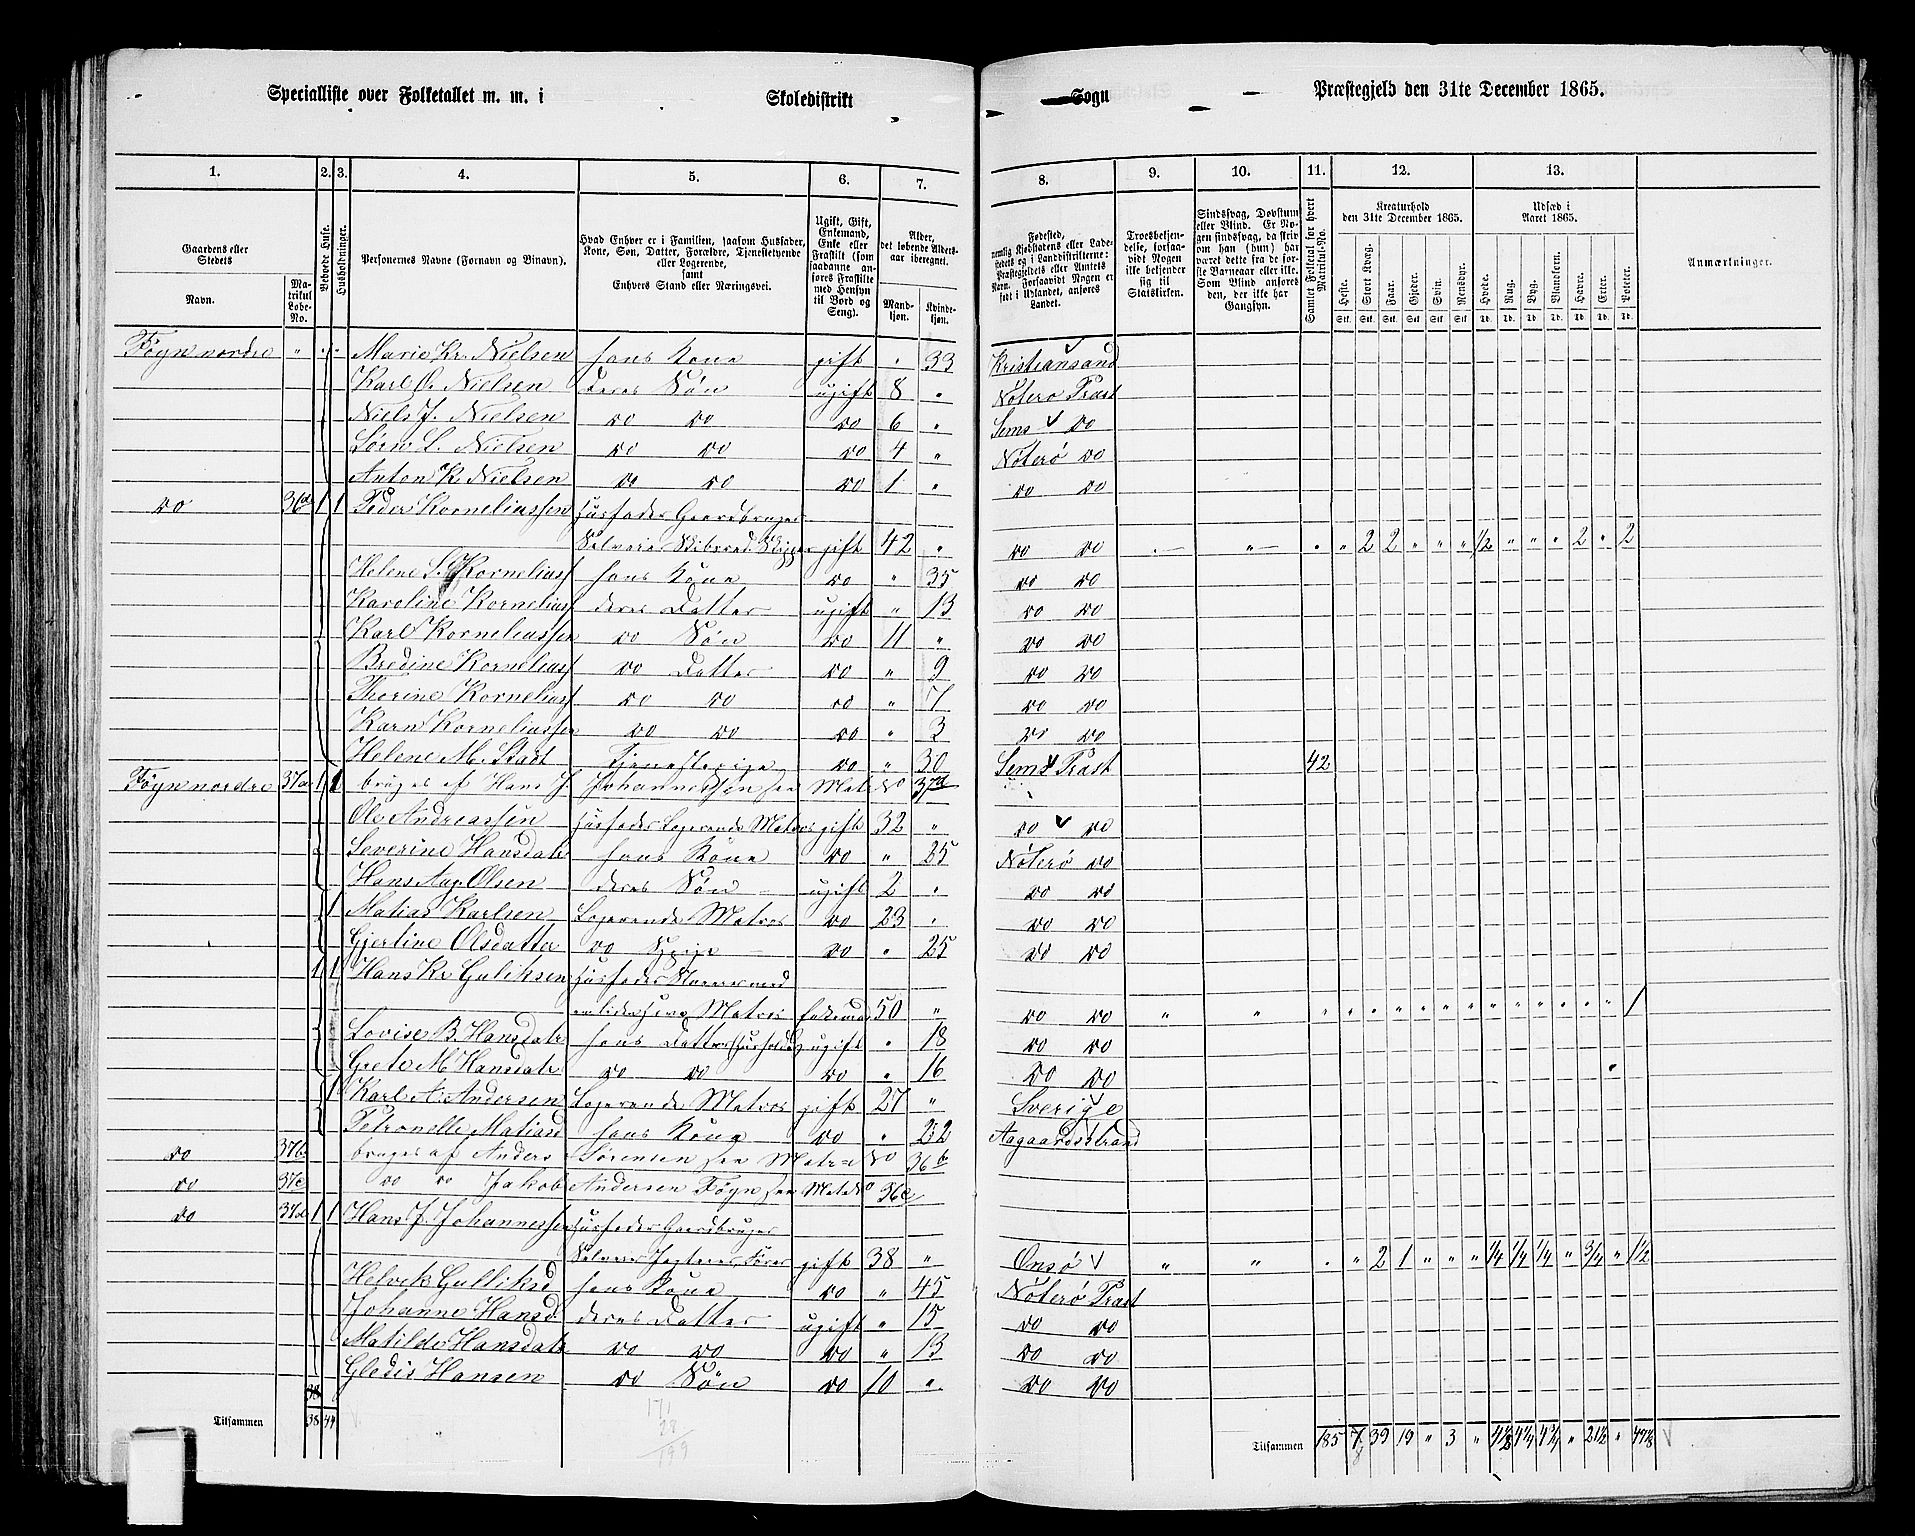 Specialliste over Folketallet m. m. i Skoledistrikt Sogn Præstegjeld den 31te December 1865.
1. 2. 3. 4. 5. 6. 7. 8. 9. 10. 11. 12. 13.
Gaardens eller Stedets
Navn.
Matrikul Løbe-No.
Beboede Huse.
Husholdninger.
Personernes Navne (Fornavn og Binavn).
Hvad Enhver er i Familien, saasom Husfader, Kone, Søn, Datter, Forældre, Tjenestetyende eller Logerende, samt Enhvers Stand eller Næringsvei.
Ugift, Gift, Enkemand, Enke eller Fraskilt (som saadanne anføres Fraskilte med Hensyn til Bord og Seng).
Alder, det løbende Aldersaar iberegnet.
Mandkjøn. Kvindekjøn.
Fødested, nemlig Kjøbstadens eller Ladestedets og i Landdistrikterne: Præstegjeldets eller Amtets Navn. Forsaavidt Nogen er født i Udlandet, anføres Landet.
Troesbekjendelse, forsaavidt Nogen ikke bekjender sig til Statskirken.
Sindssvag, Døvstum eller Blind. Er Nogen sindssvag, da skriv om han (hun) har været dette fra de første Barneaar eller ikke. Som Blind anføres den, der ikke har Gangsyn.
Samlet Folketal for hvert Matrikul-No.
Kreaturhold den 31te December 1865.
Heste. Stort Kvæg. Faar. Gjeder. Svin. Rensdyr.
Udsæd i Aaret 1865.
Hvede. Rug. Byg. Blandkorn. Havre. Erter. Poteter.
Anmærkninger.
Føyn nordre " Marie Kr. Nielsen hans Kone gift " 33 Kristiansand
Karl O. Nielsen deres Søn ugift 8 " Nøterø Præst
Niels J. Nielsen do do do 6 " Sems do
Sørin L. Nielsen do do do 4 " Nøterø do
Anton K. Nielsen do do do 1 " do do
do 36d 1 1 Peder Korneliussen Husfader Gaardbruger
Selveier Skibsred. Skipper gift 42 " do do " 2 2 " " " 1/2 " " " 2 " 2
Helene S. Korneliuss hans Kone do " 35 do do
Karoline Korneliuss deres Datter ugift " 13 do do
Karl Korneliussen do Søn do 11 " do do
Bredine Korneliuss do Datter do " 9 do do
Therine Korneliuss do do do " 7 do do
Karn Korneliussen do do do " 3 do do
Helene M. Stadt Tjenestepige do " 30 Sems Præst 42
Føyn nordre 37a 1 1 bruges af Hans J. Johannessen see Matr No 37d
Ole Andreassen Husfader Logerende Matros gift 32 " do do
Severine Hansdatr hans Kone do " 25 Nøterø do
Hans Aug. Olsen deres Søn ugift 2 " do do
1 Matias Karlsen Logerende Matros do 23 " do do
Gjertine Olsdatter do Pige do " 25 do do
1 1 Hans Kr. Guliksen Husfader Huusmand
Matros Enkemand 50 " do do " " " " " " " " " " " " " " " 1
Lovise B. Hansdatr hans Datter Husholder ugift " 18 do do
Grete M. Hansdatr do do do " 16 do do
1 Karl A. Andersen Logerende Matros gift 27 " Sverige
Petronelle Matiasd hans Kone do " 22 Aagaardsstrand
do 37b bruges af Anders Sørensen see Matr No 36b
do 37c do do Jakob Andersen Føyn see Matr No 36c
do 37d 1 1 Hans J. Johannessen Husfader Gaardbruger
Selveier Jagteier, Fører gift 38 " Onsø " " " " 2 1 " " " 1/4 1/4 1/4 " 3/4 " 1 1/2
Helvik Gulliksd hans Kone do " 45 Nøterø Præst
Johanne Hansd. deres Datter ugift " 15 do do
Matilde Hansdatr do do do " 13 do do
Gledis Hansen do Søn do 10 " do do
38
Tilsammen 38 44
171
28
199
Tilsammen 185 7 39 19 " 3 " 4 1/8 4 1/4 4 3/4 " 21 1/2 " 47 1/8
8